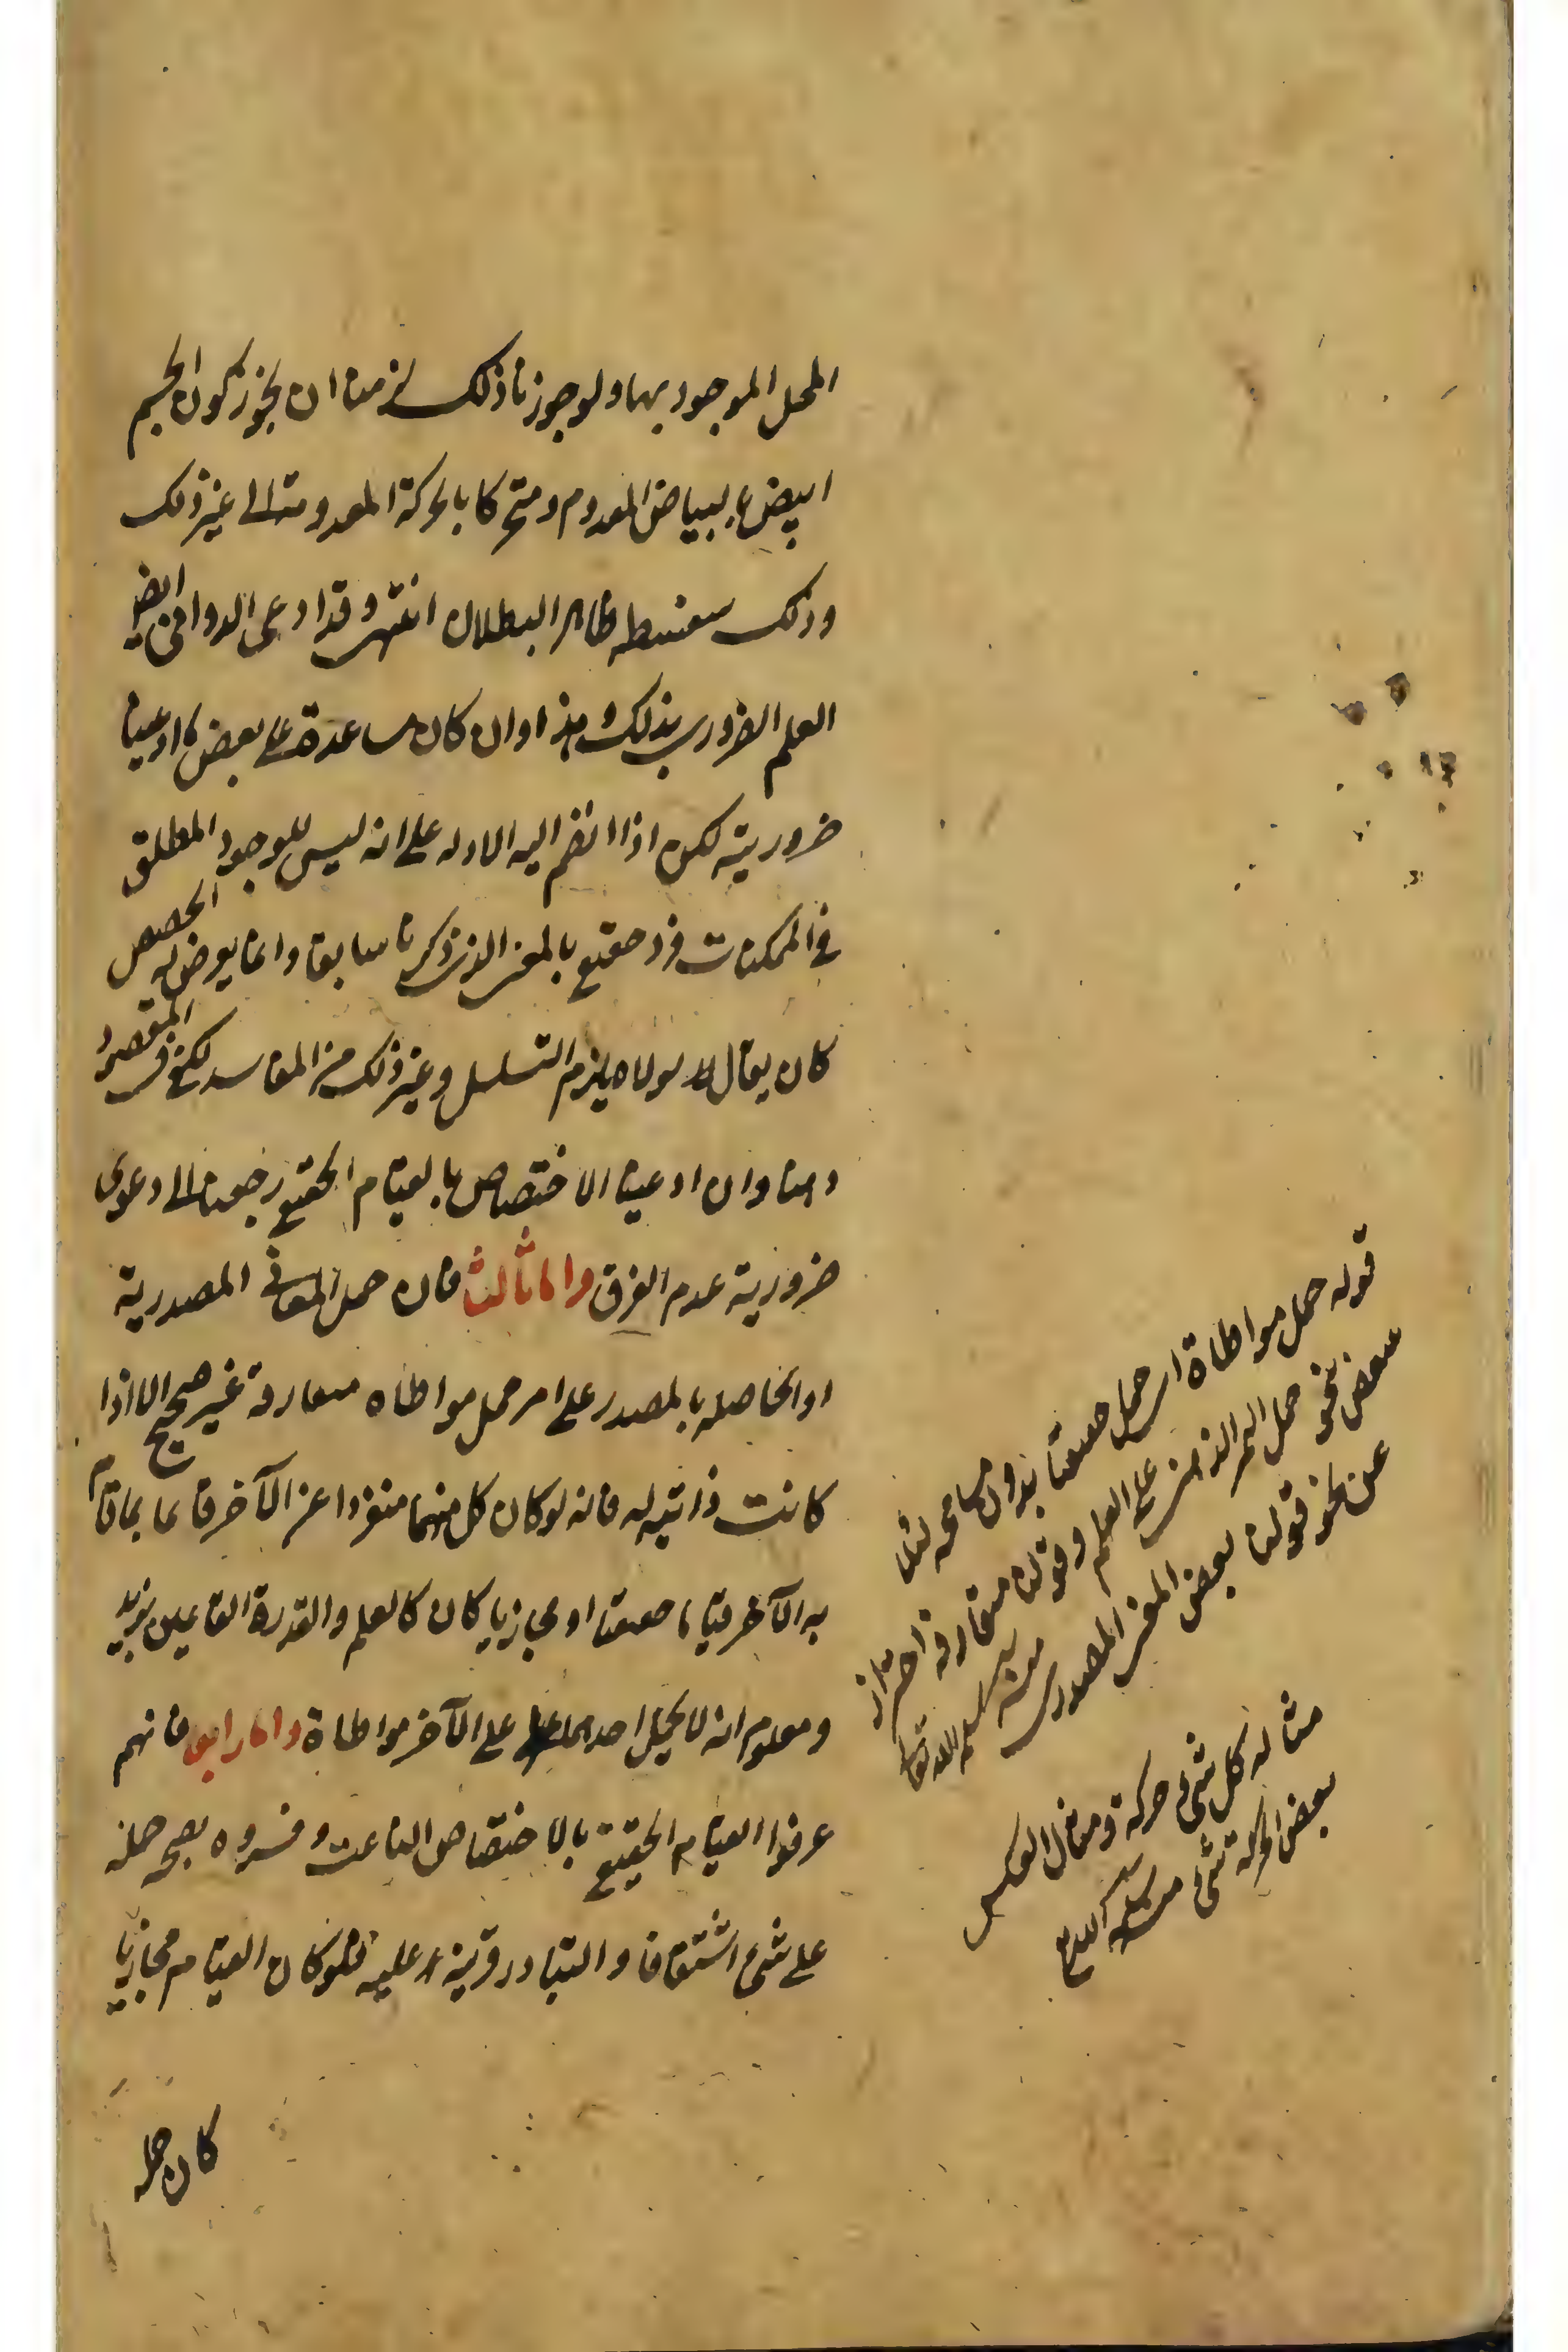 المحل الموجود بها ولو جوزنا ذلك لزمنا ان يجوز كون الجسم
ابيض ببياض المعدوم ومتحركا بالحركة المعدومة الى غير ذلك
وذلك سفسطه ظاهر البطلان انتهى وقد ادعى الدوانى ايضا
العلم الضرورى بذلك وهذا وان كان مساعدة على بعض ما ادعينا
ضروريته لكن اذا انضم اليه الادله على انه ليس للوجود المطلق
فى الممكنات فرد حقيقى بالمعنى الذى ذكرنا سابقا وانما يعرض له الحصص
كان يقال لولاه يلزم التسلسل وغير ذلك من المفاسد لكفى فى المقصود
وهنا وان ادعينا الاختصاص بالقيام الحقيقى رجعنا الى دعوى
ضرورية عدم الفرق واما ثالثا فان حمل المعانى المصدرية
او الحاصله بالمصدر على امر حمل مواطاه متعارفة غير صحيح الا اذا
كانت ذاتيه له فانه لو كان كل منهما منفردا عن الآخر قائما بما قام
به الآخر قياما حقيقيا او مجازيا كان كالعلم والقدرة القائمين بزيد
ومعلوم انه لا يحمل احدهما على الآخر مواطاة واما رابعا فانهم
عرفوا القيام الحقيقى بالاختصاص الناعت وفسروه بصحة حمله
على شئ اشتقاقا والتبادر قرينة عليه فلو كان القيام مجازيا
كان حمله
قوله حمل مواطاة اى حمل حقيقيا بدون مسامحه لئلا
ينقض بنحو حمل الامر الذهنى على العلم وقولنا متعارفه احتراز
عن نحو قولنا بعض المعنى المصدرى منه سلمه الله تعالى
مثاله كل شئ حركة ومثال العكس
بعض الحركة شئ منه سلمه الله